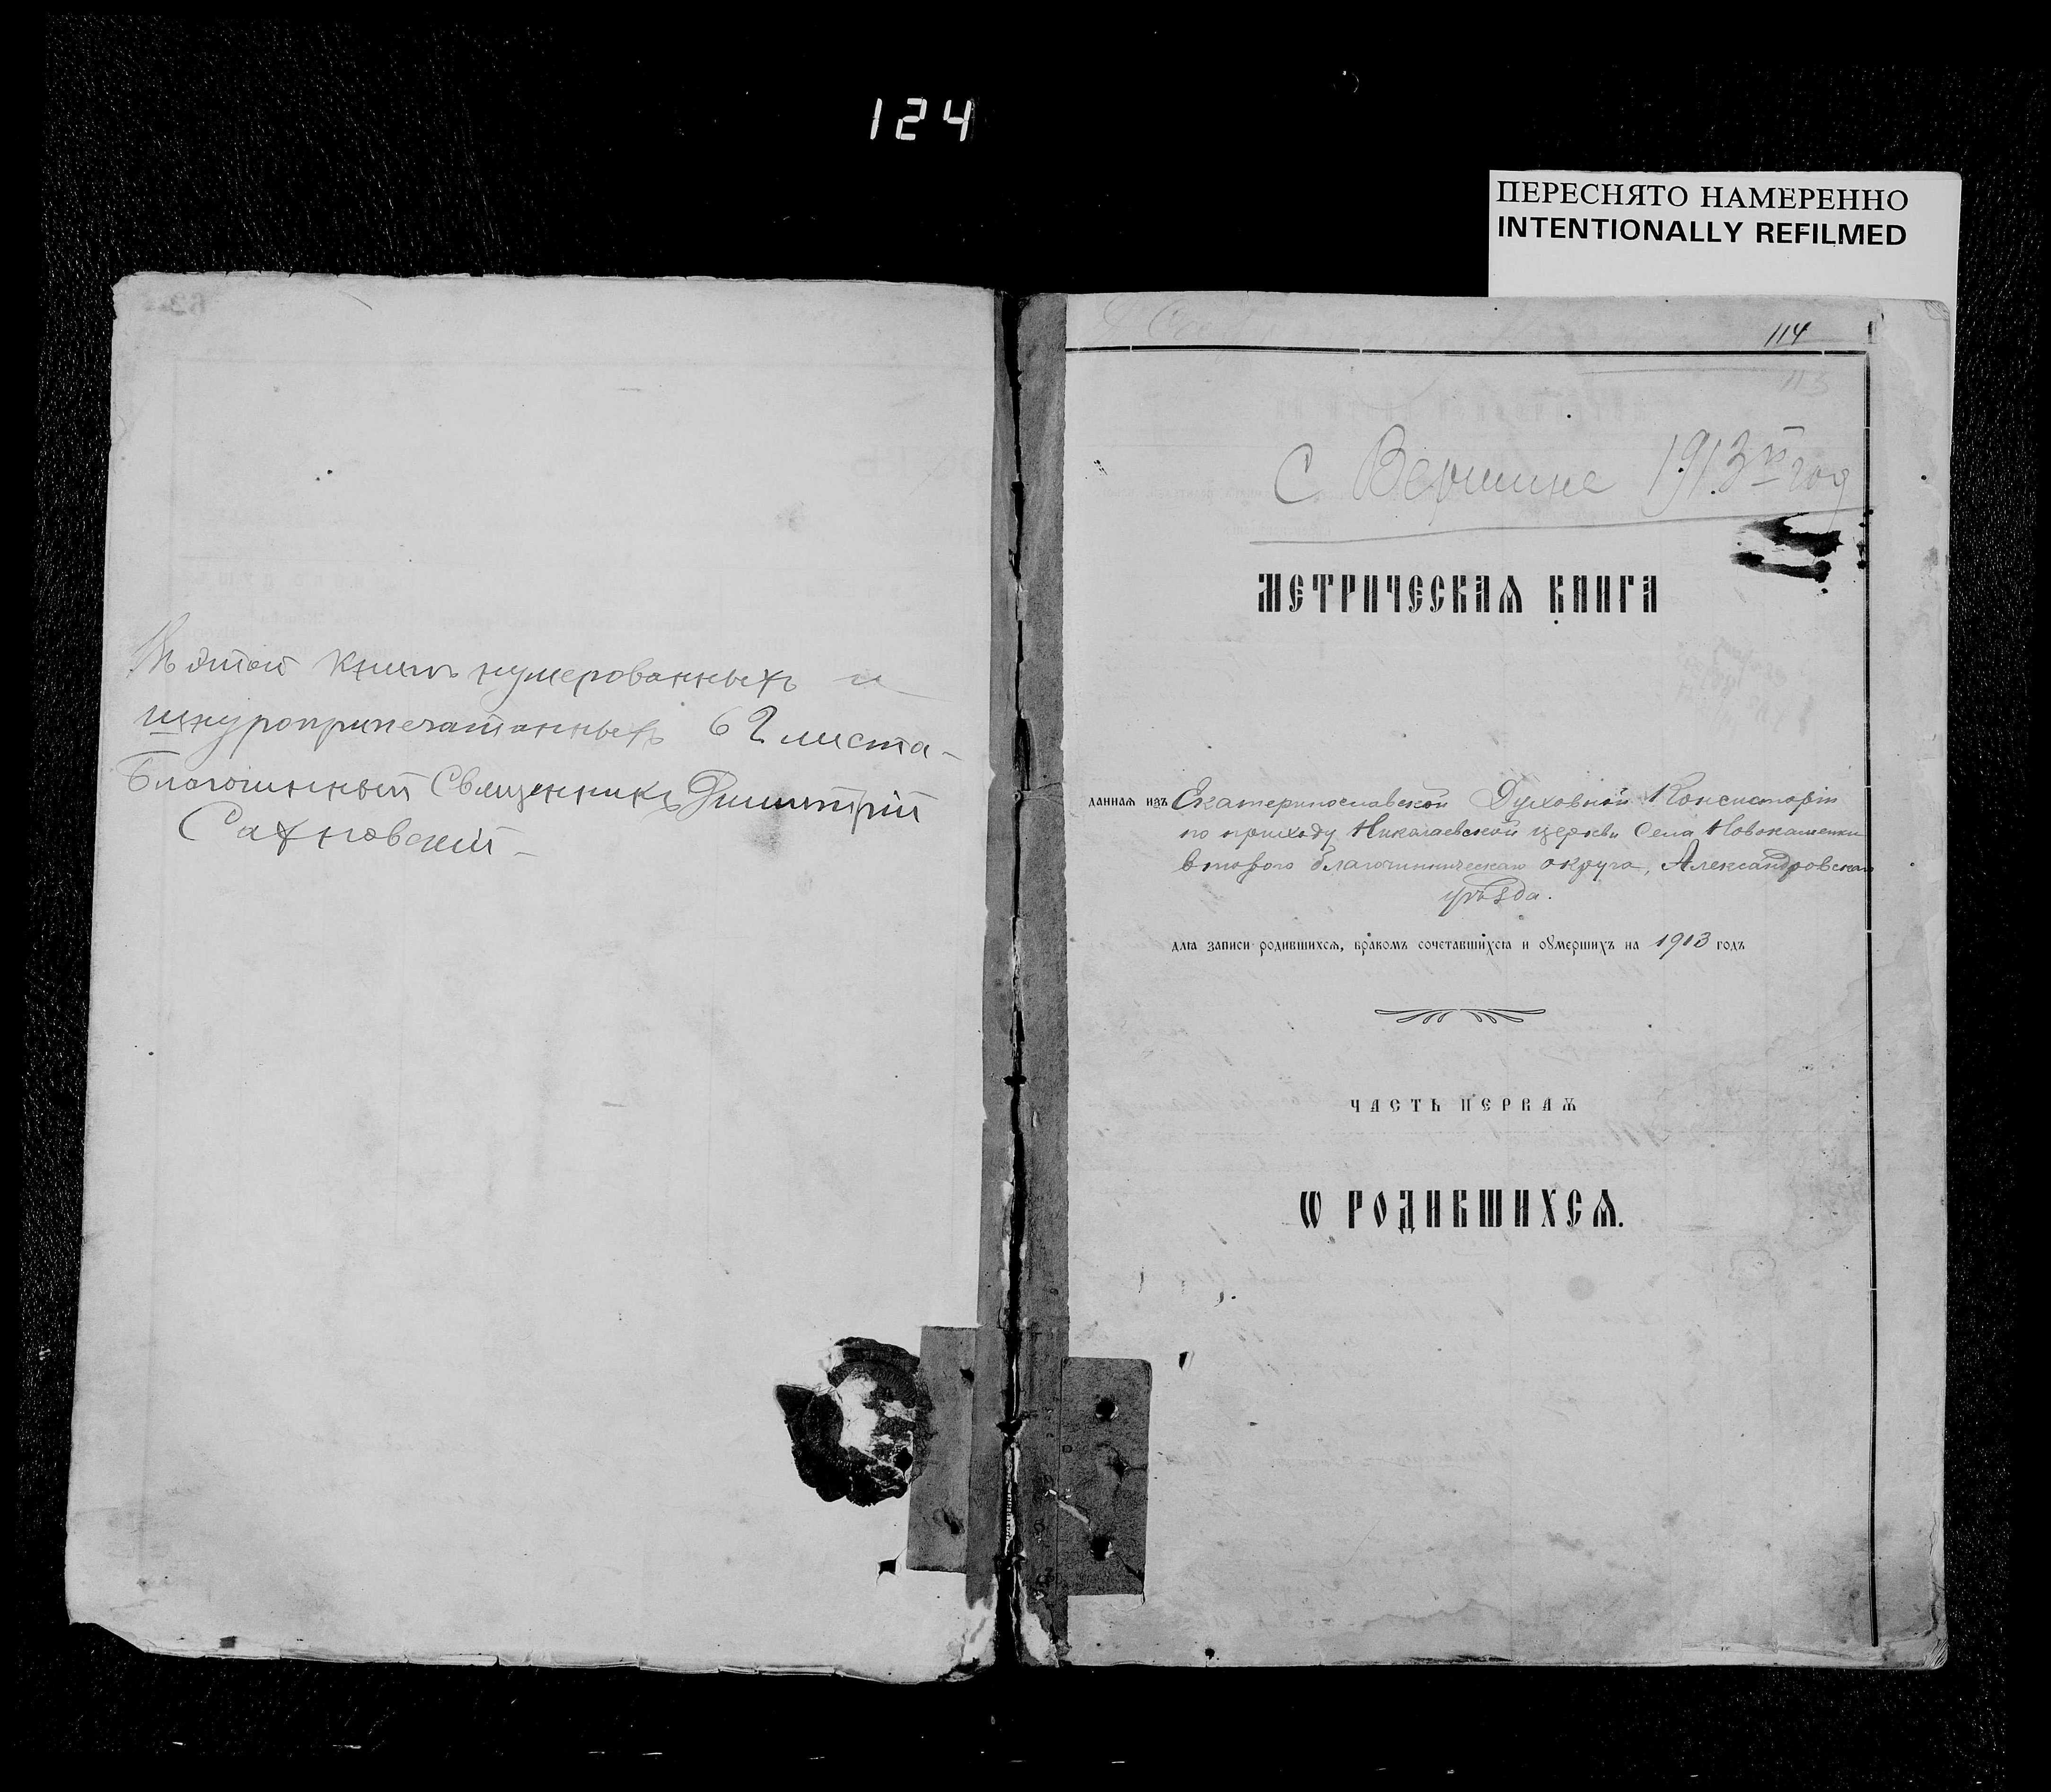 124
ПЕРЕСНЯТО НАМЕРЕННО
INTENTIONALLY REFILMED
Въ этой книгѣ нумерованныхъ и
шнуроприпечатанныхъ 62 листа –
Благочинный Священникъ Димитрій
Сахновскій –
114
113
С. Вершине 1913й год
МЕТРИЧЕСКАѦ КНИГА
даннаѧ изъ Екатеринославской Духовной Консисторіи
по приходу Николаевской церкви Села Новокаменки
второго благочинническаго округа, Александровскаго
уѣзда.
длѧ записи родившихсѧ, бракомъ сочетавшихсѧ и оумершихъ на 1913 годъ
ЧАСТЬ ПЕРВАѦ
Ѡ РОДИВШИХСѦ.